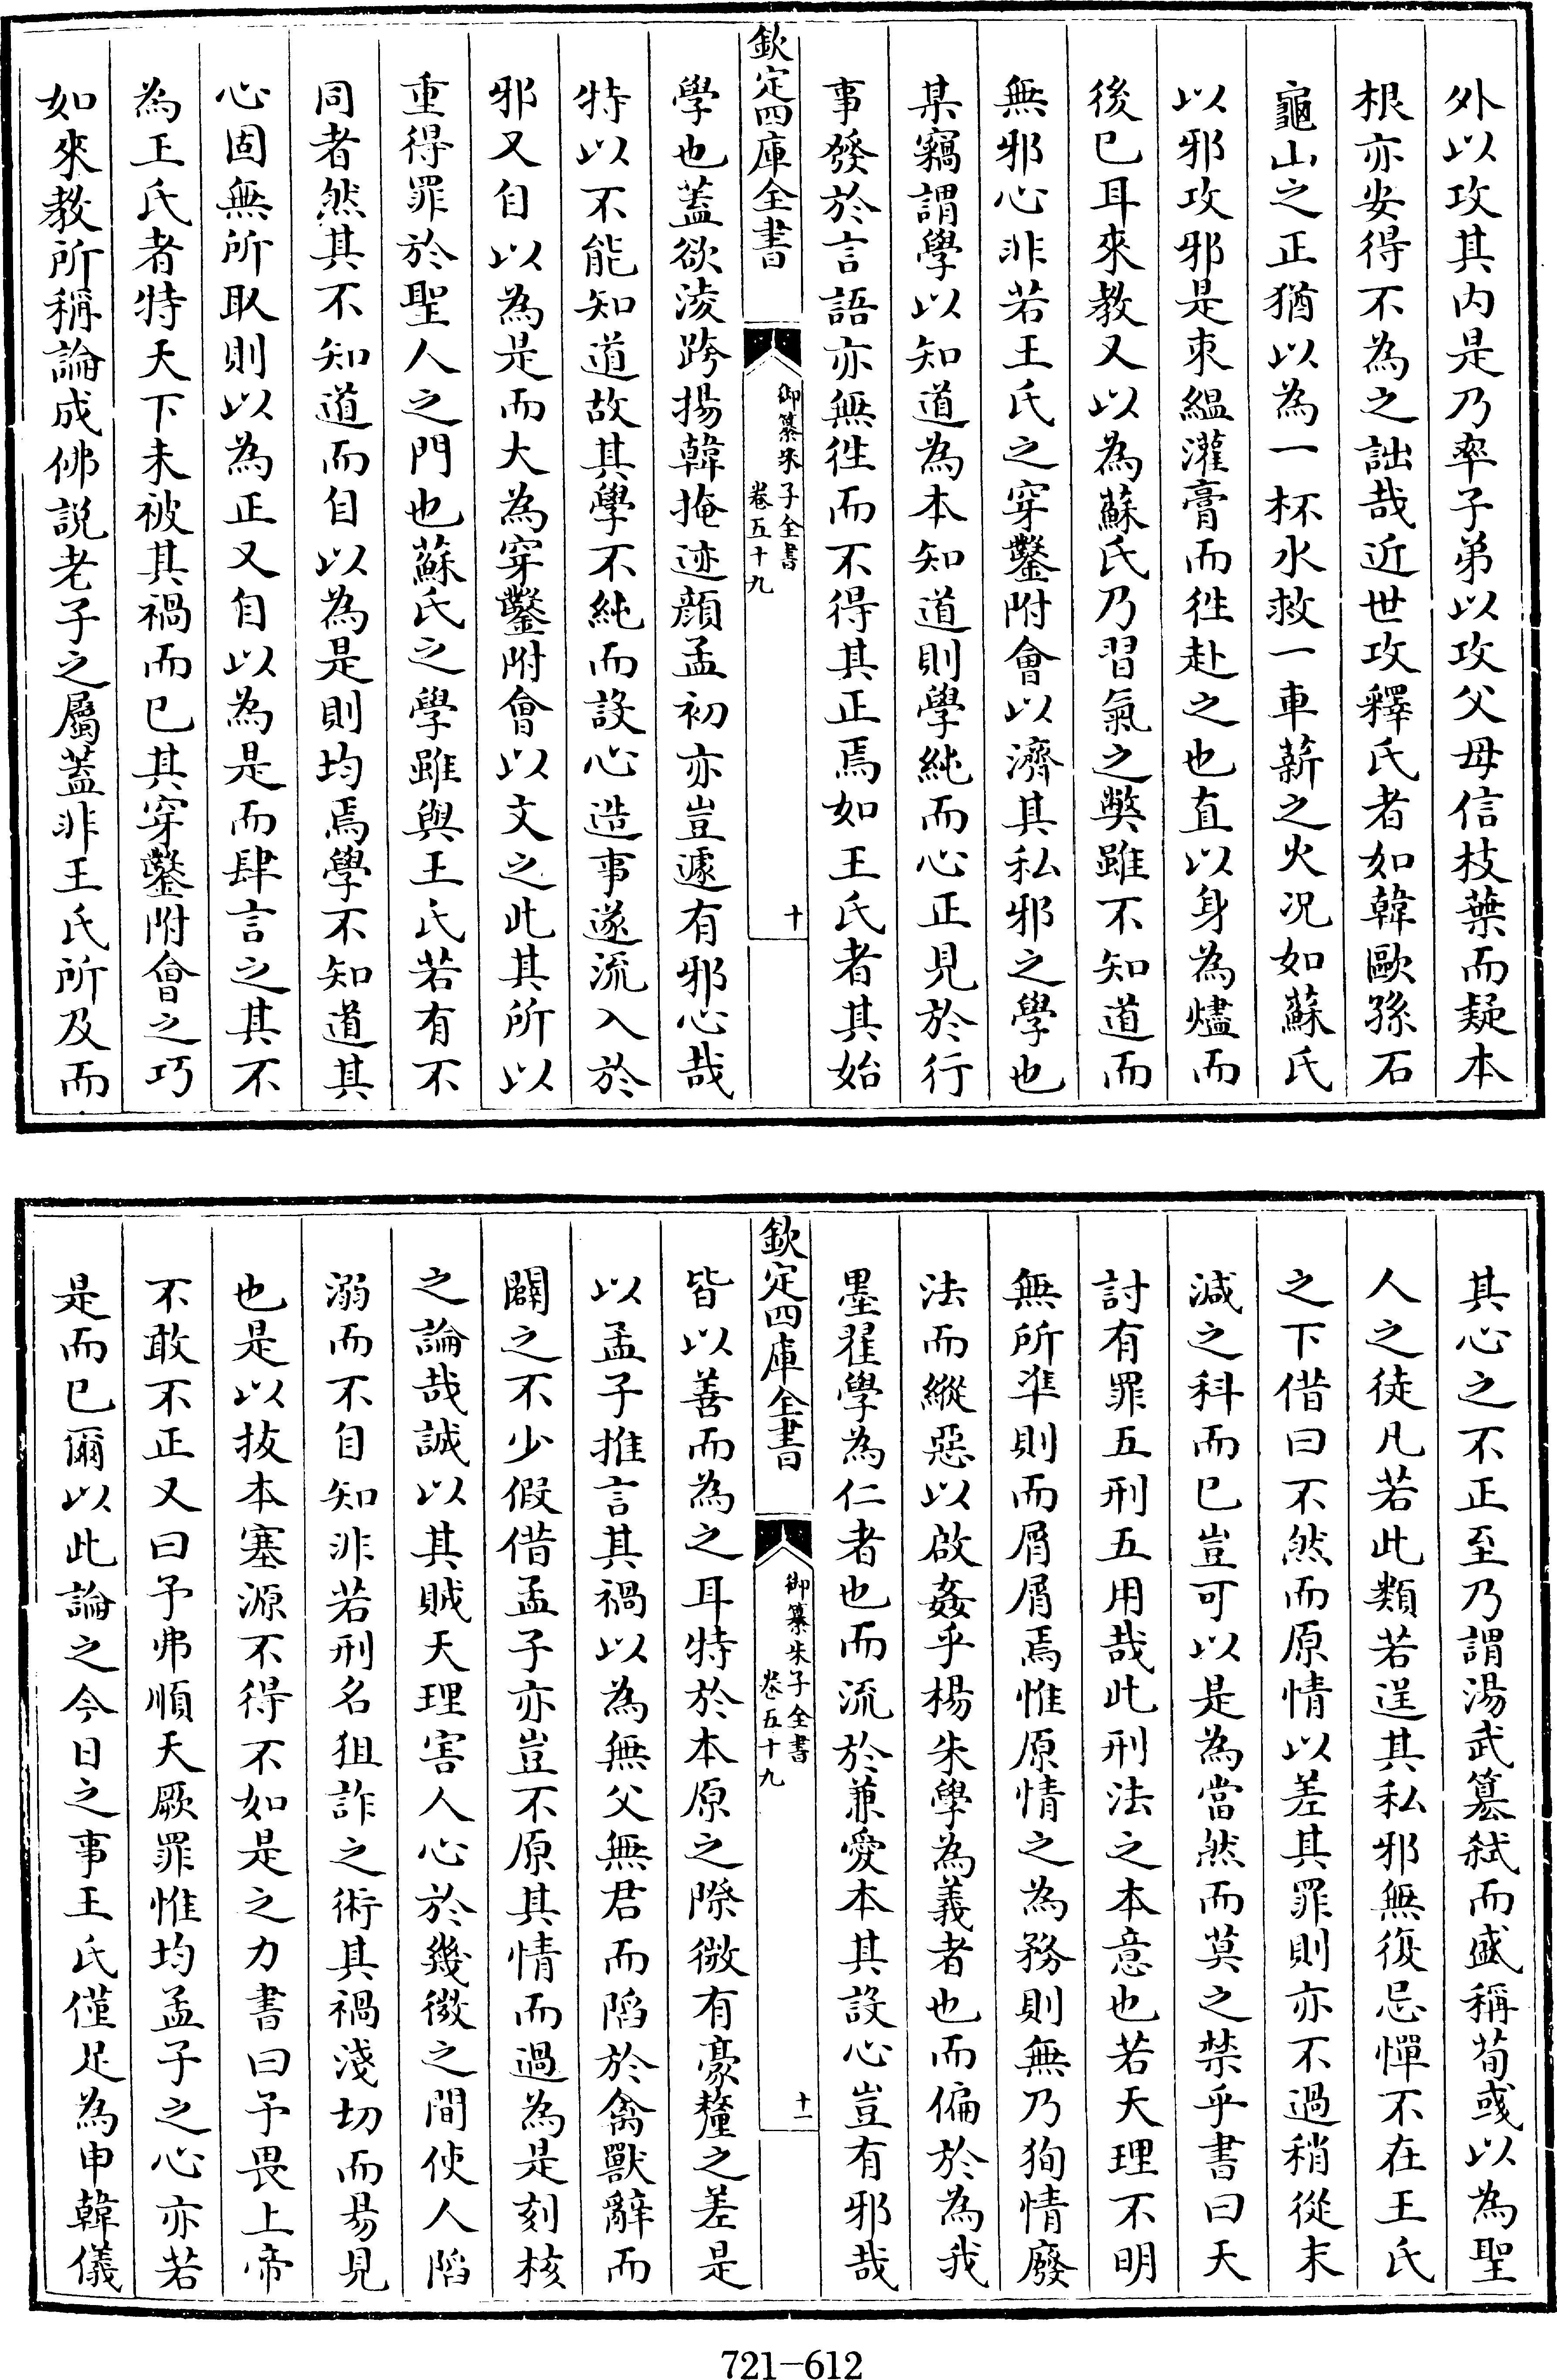 外以攻其内是乃率子弟以攻父母信枝葉而疑本
根亦安得不為之詘哉近世攻釋氏者如韓歐孫石
龜山之正猶以為一杯水救一車薪之火况如蘇氏
以邪攻邪是束緼灌膏而徃赴之也直以身為燼而
後已耳來教又以為蘇氏乃習氣之獘雖不知道而
無邪心非若王氏之穿鑿附會以濟其私邪之學也
某竊謂學以知道為本知道則學純而心正見於行
事發於言語亦無徃而不得其正焉如王氏者其始
欽定四庫全書
御纂朱子全書
卷五十九
十
學也蓋欲淩跨揚韓掩迹顔孟初亦豈遽有邪心哉
特以不能知道故其學不純而設心造事遂流入於
邪又自以為是而大為穿鑿附會以文之此其所以
重得罪於聖人之門也蘇氏之學雖與王氏若有不
同者然其不知道而自以為是則均焉學不知道其
心固無所取則以為正又自以為是而肆言之其不
為王氏者特天下未被其禍而已其穿鑿附會之巧
如來教所稱論成佛説老子之屬蓋非王氏所及而
其心之不正至乃謂湯武簒弑而盛稱荀彧以為聖
人之徒凡若此類若逞其私邪無復忌憚不在王氏
之下借曰不然而原情以差其罪則亦不過稍從末
減之科而已豈可以是為當然而莫之禁乎書曰天
討有罪五刑五用哉此刑法之本意也若天理不明
無所凖則而屑屑焉惟原情之為務則無乃狥情廢
法而縱惡以啟姦乎楊朱學為義者也而偏於為我
墨翟學為仁者也而流於兼愛本其設心豈有邪哉
欽定四庫全書
御纂朱子全書
卷五十九
十一
皆以善而為之耳特於本原之際微有豪釐之差是
以孟子推言其禍以為無父無君而陷於禽獸辭而
闢之不少假借孟子亦豈不原其情而過為是刻核
之論哉誠以其賊天理害人心於幾微之間使人陷
溺而不自知非若刑名狙詐之術其禍淺切而易見
也是以拔本塞源不得不如是之力書曰予畏上帝
不敢不正又曰予弗順天厥罪惟均孟子之心亦若
是而已爾以此論之今日之事王氏僅足為申韓儀
721-612